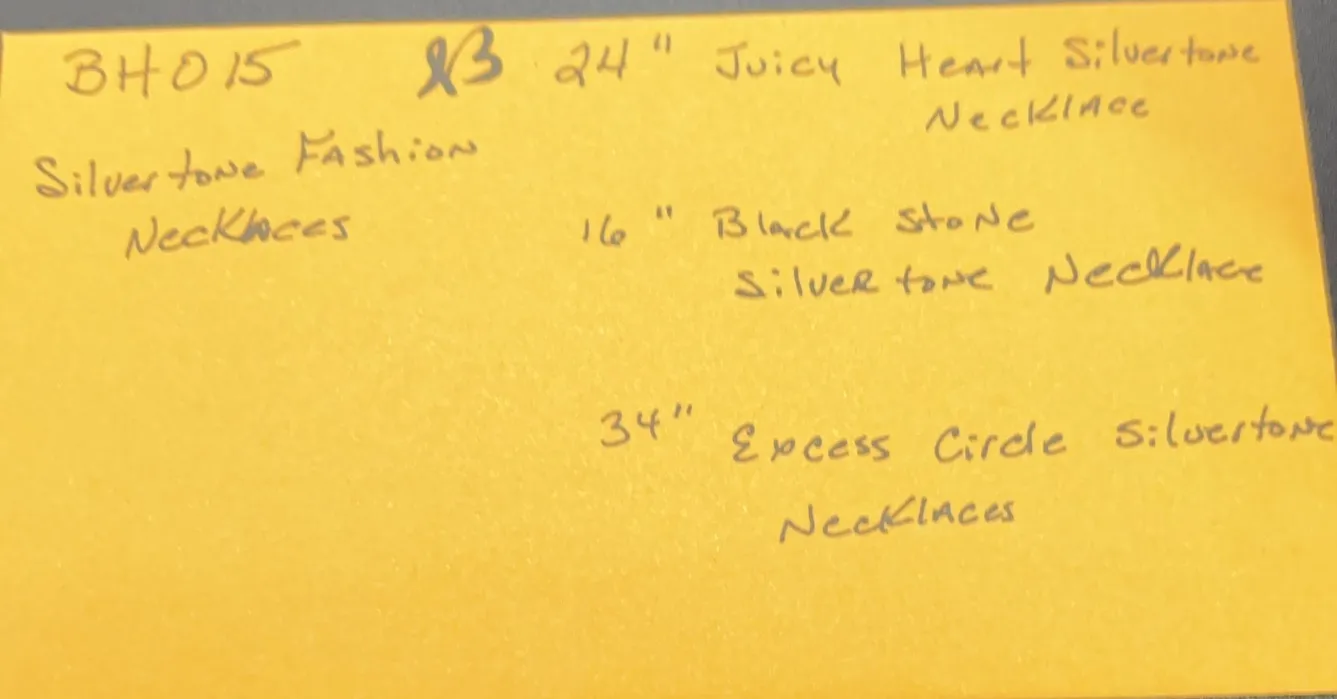 BH015
Silvertone Fashion
Necklaces
3 24" Juicy Heart Silvertone
Necklace
16" Black Stone
Silvertone Necklace
34" Excess Circle Silvertone
Necklaces